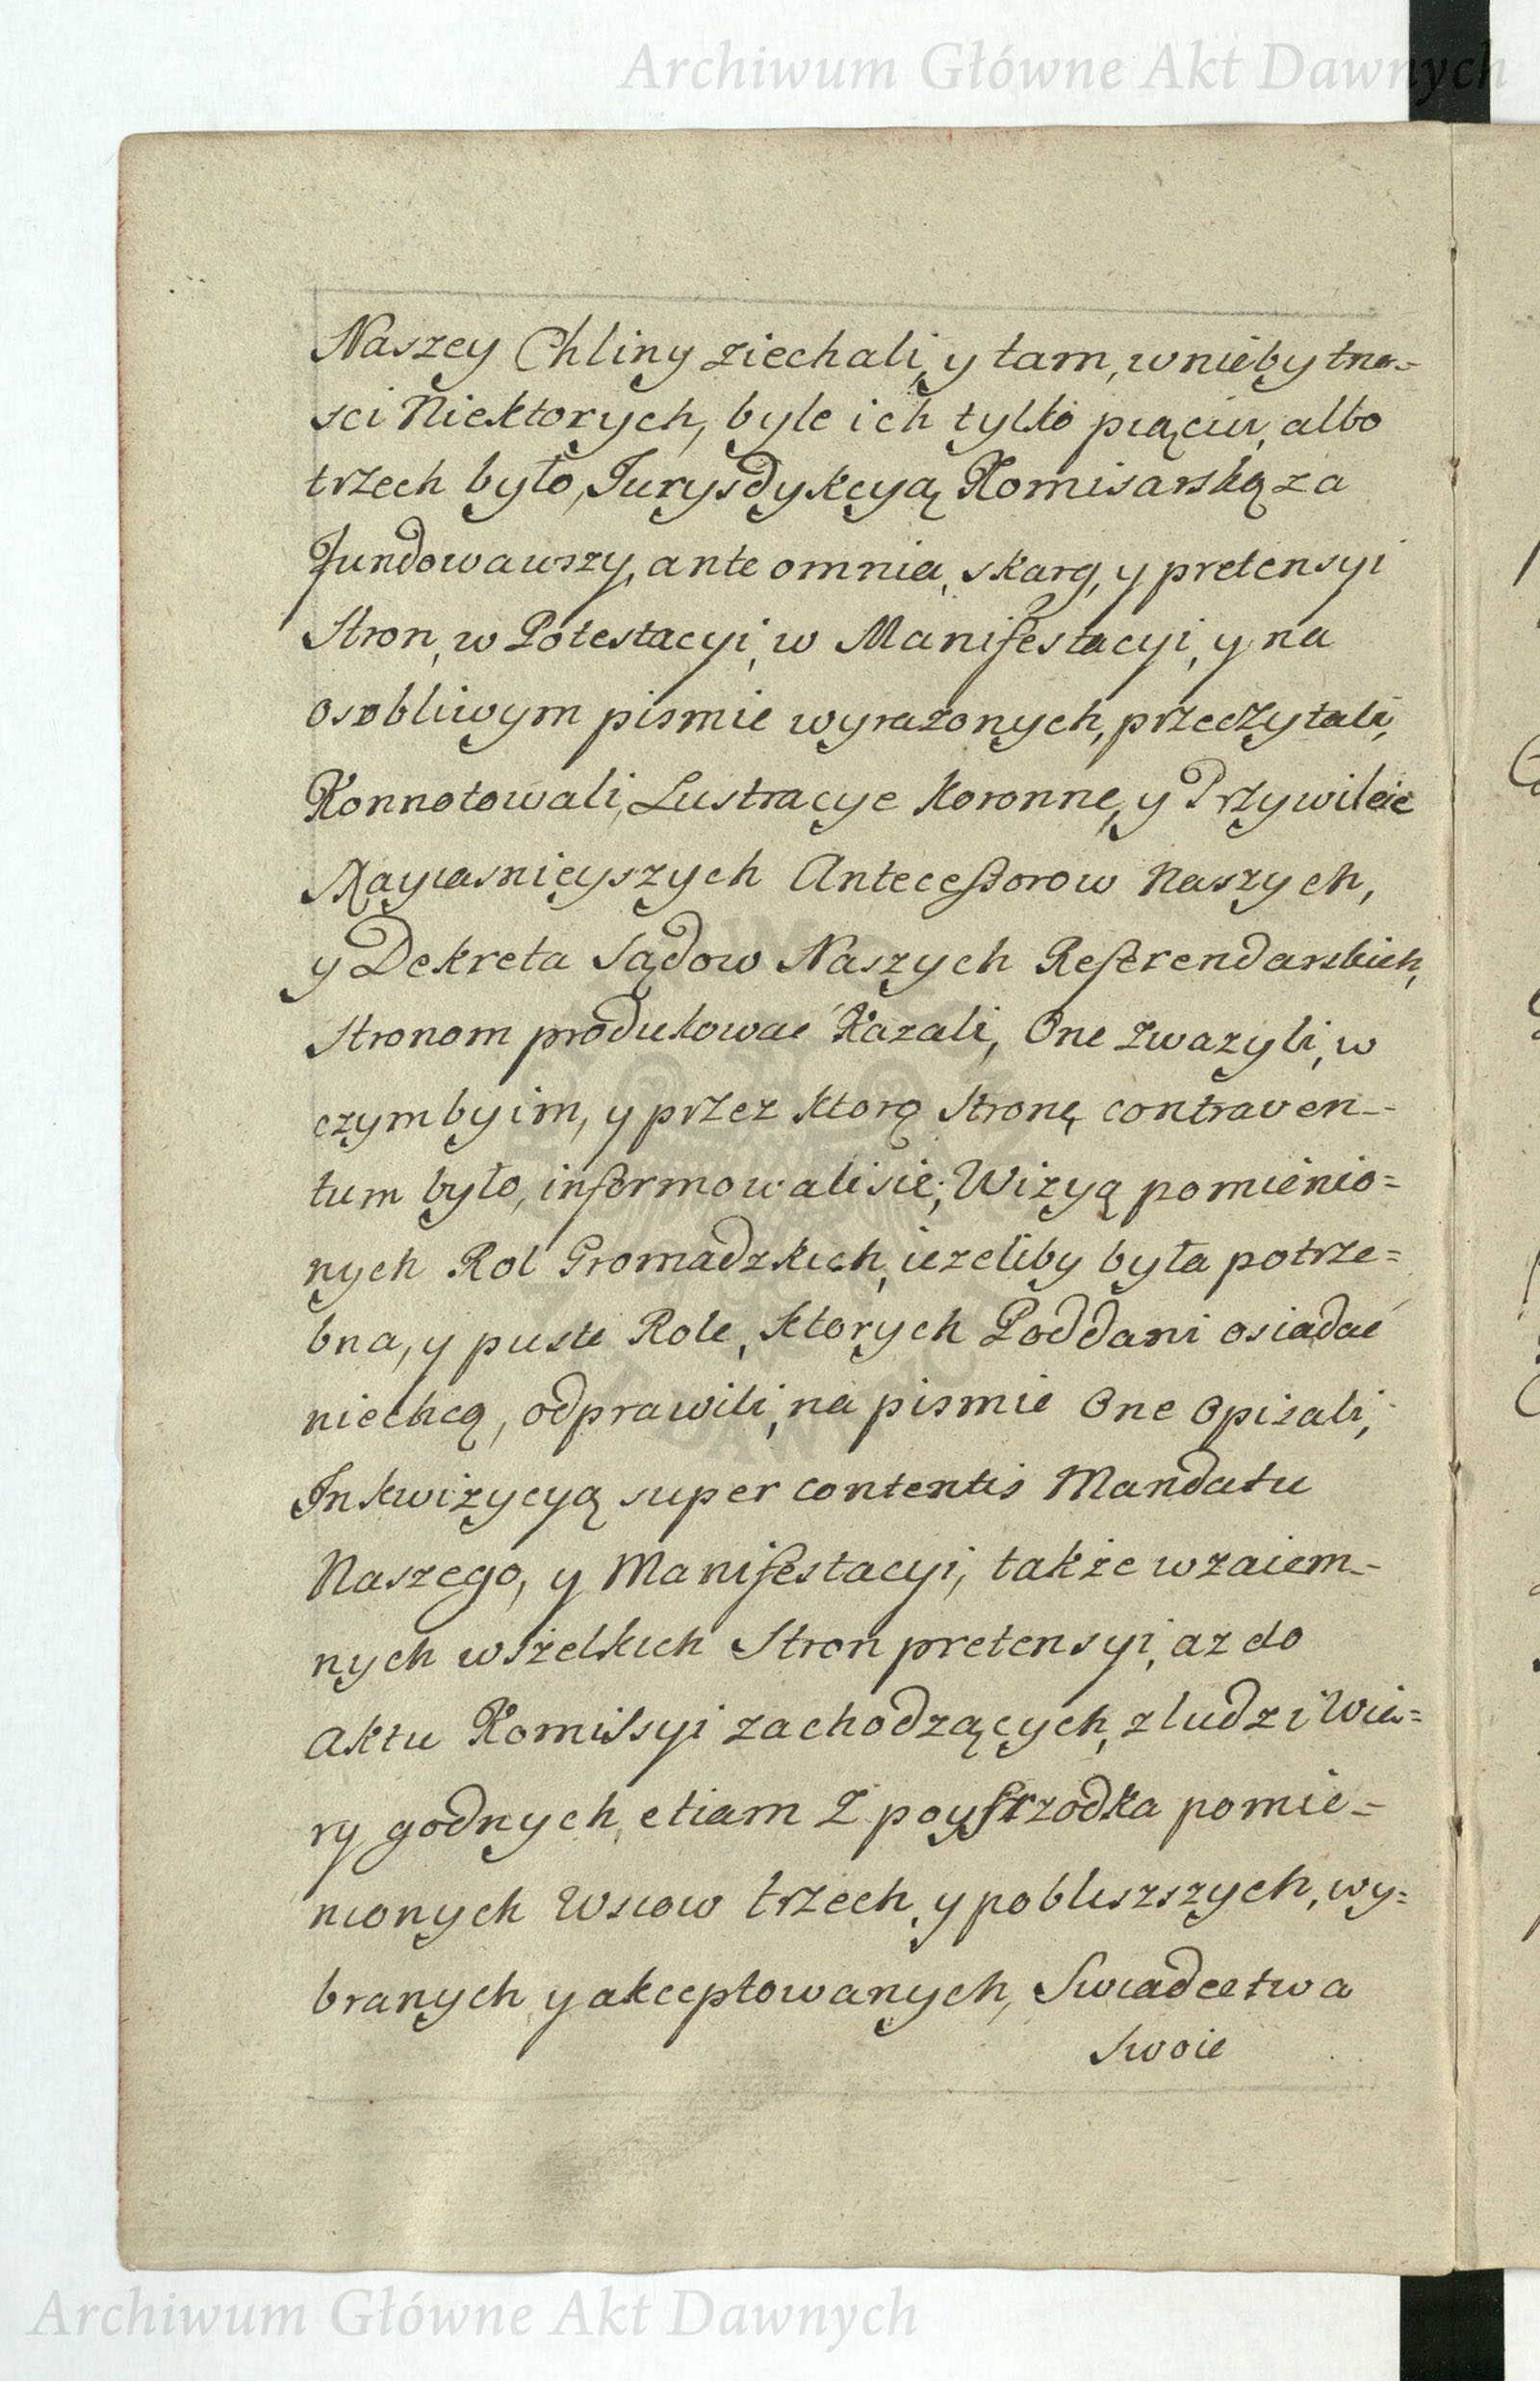 Archiwum Główne Akt Dawnych
Naszey Chliny ziechali, y tam, w niebytno-
sci Niektorych, byle ich tylko pięciu, albo
trzech było, Jurysdykcyą Komisarską za
fundowawszy, ante omnia, skarg, y pretensyi
Stron, w Potestacyi, w Manifestacyi, y na
osobliwym pismie wyrazonych, przeczytali,
Konnotowali, Lustracye Koronne, y Przywileie
Nayiasnieyszych Antecessorow Naszych,
y Dekreta Sądow Naszych Referendarskich,
Stronom produkować Kazali, One zwazyli, w
czymby im, y przez ktorą Stronę contraven-
tum było, informowali sie; Wizyą pomienio=
nych Rol Gromadzkich, iezeliby była potrze=
bna, y puste Role, ktorych Poddani osiadać
niechcą, odprawili, na pismie One Opisali,
Inkwizycyą super contentis Mandatu
Naszego, y Manifestacyi, także wzaiem-
nych wszelkich Stron pretensyi, az do
Aktu Komissyi zachodzących, z ludzi Wia=
ry godnych, etiam z poysrzodka pomie=
nionych Wsiow trzech, y pobliszszych, wy=
branych y akceptowanych, Swiadectwa
Swoie
Archiwum Główne Akt Dawnych